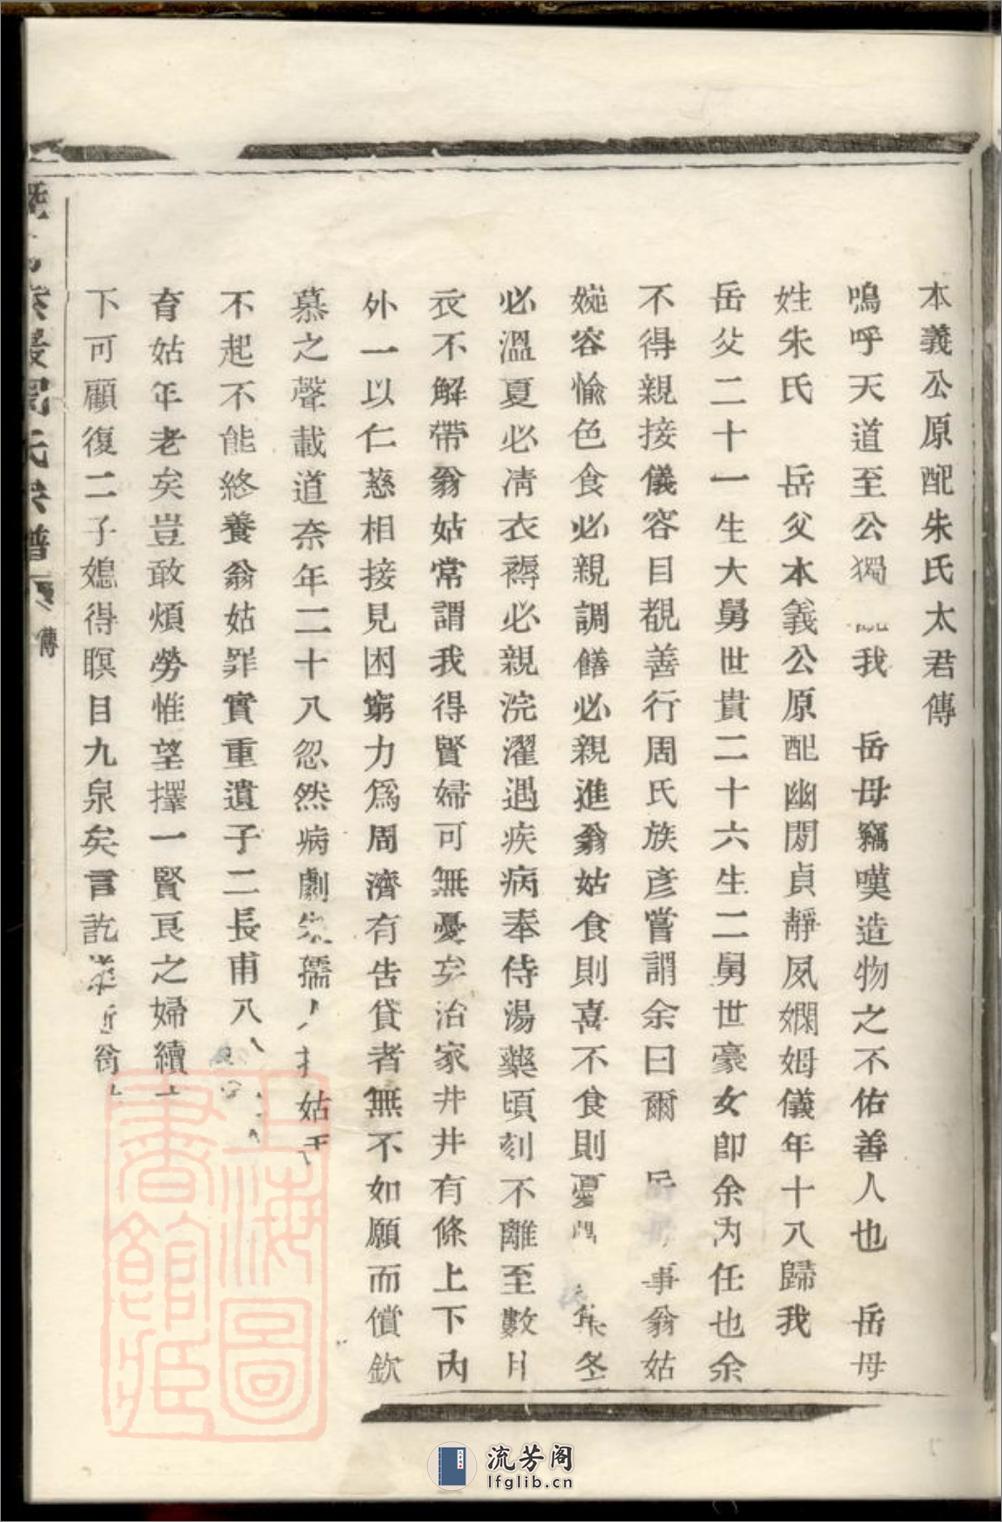 本義公原配朱氏太君傳
嗚呼天道至公獨 我 岳母竊嘆造物之不佑善人也 岳母
姓朱氏 岳父本義公原配幽閒貞靜夙嫻姆儀年十八歸我
岳父二十一生大舅世貴二十六生二舅世豪女即余內任也余
不得親接儀容目覩善行周氏族彥嘗謂余曰爾 岳母事翁姑
婉容愉色食必親調饍必親進翁姑食則喜不食則憂 冬
必溫夏必凊衣褥必親浣濯遇疾病奉侍湯藥頃刻不離至數日
衣不解帶翁姑常謂我得賢婦可無憂矣治家井井有條上下內
外一以仁慈相接見困窮力爲周濟有告貸者無不如願而償欽
慕之聲載道奈年二十八忽然病劇 孺 姑
不起不能終養翁姑罪實重遺子二長甫八
育姑年老矣豈敢煩勞惟望擇一賢良之婦續
下可顧復二子媳得瞑目九泉矣言訖 翁
氏宗譜
傳
上海圖書館藏
流芳阁
lfglib.cn